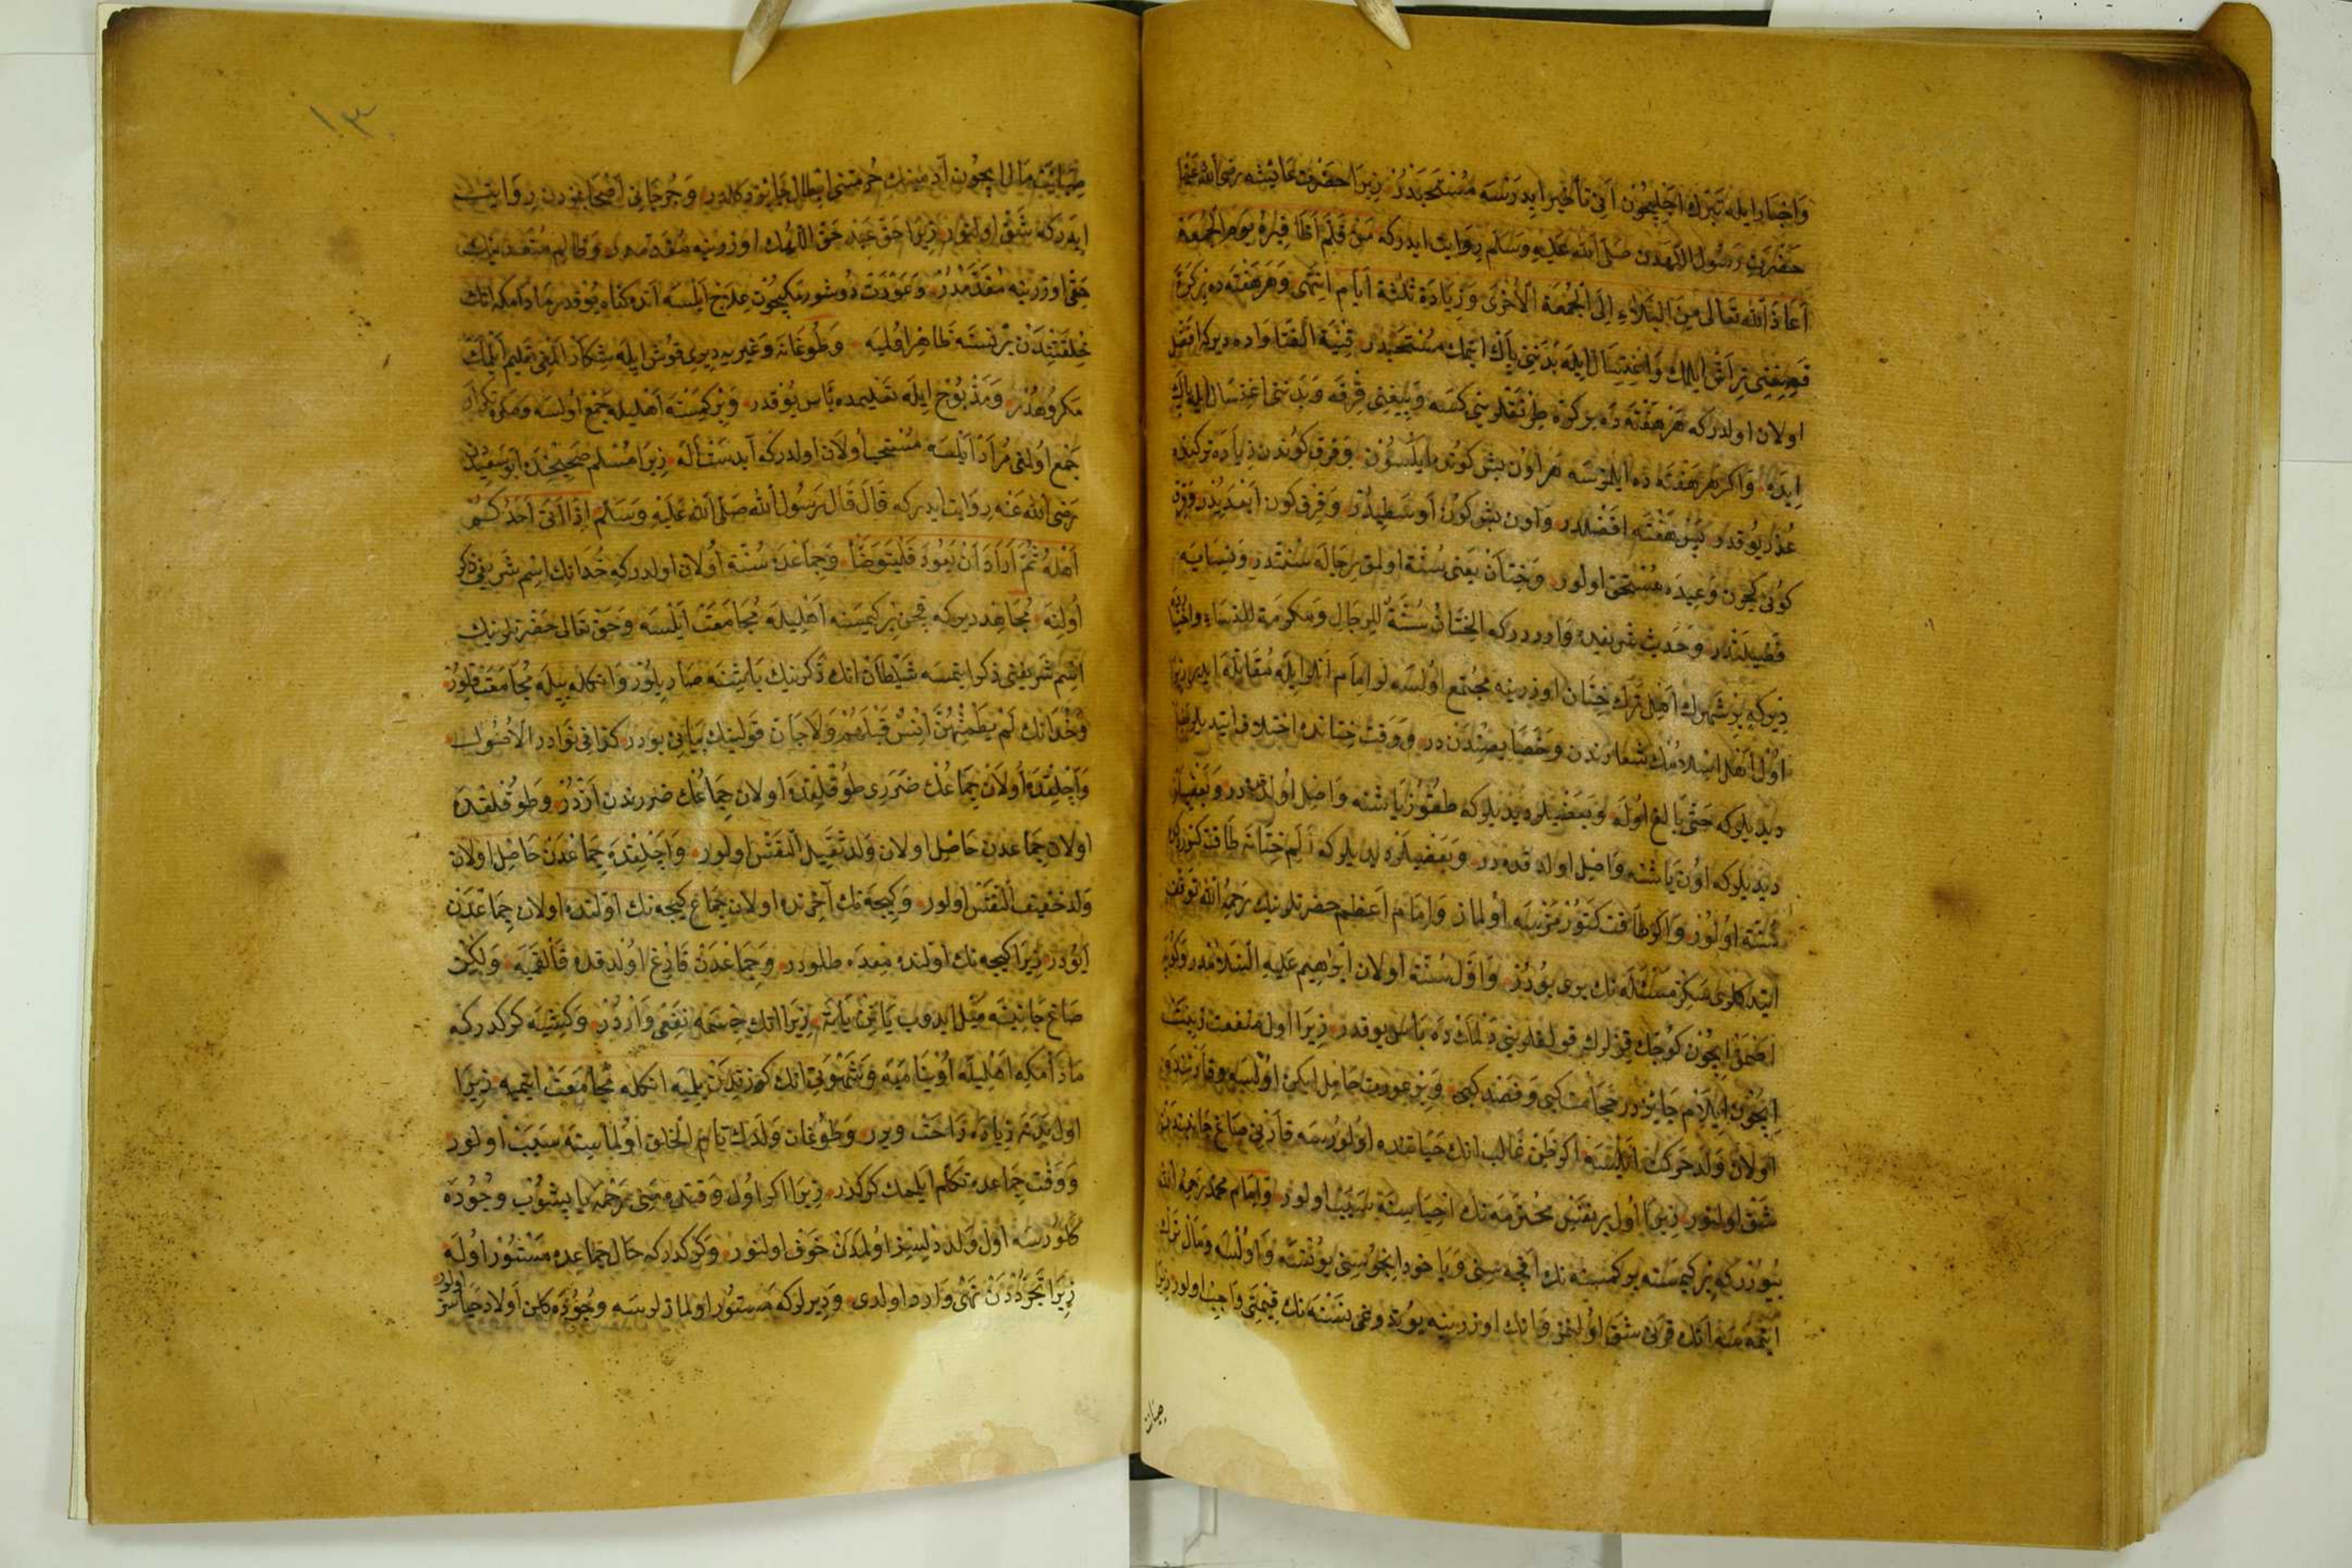 واخبار ايله تبرك اچليچون انى تأخير ايدرسه مستحبدر زيرا حضرت عايشه رضى الله عنها
حضرت رسول اللهدن صلى الله عليه وسلم روايت ايدركه من قلم اظافيره يوم الجمعة
اعاذه الله تعالى من البلاء الى الجمعة الاخرى وزيادة ثلثة ايام انتهى وهر هفته ده بر كره
تراش ايلمك واغتسال ايله بدننى پاك ايتمك مستحبدر قنية الفتاواده ديركه افضل
اولان اولدركه هر هفته ده بر كره طرنقلرينى كسه وبيغنى قرقه وبدننى اغتسال ايله پاك
ايده واكر هر هفته ده ايلمزسه هر اون بش كونده ايلسون وقرق كوندن زياده تركنده
عذر يوقدر پس هفته افضلدر واون بش كون اوسطيدر وقرق كون ابعديدر وقرق
كونى كچن وعيده مستحق اولور وختان يعنى سنة اولمق رجاله سنتدر ونسايه
فضيلتدر وحديث شريفده وارددركه الختان سنة للرجال ومكرمة للنساء واختيارده
ديركه بر شهرك اهلى ترك ختان اوزرينه مجتمع اولسه لر امام انلر ايله مقابله ايدر زيرا
اول اهل اسلامك شعارندن وخصايصندن در ووقت ختانده اختلاف ايتديلر بعضيلر
ديديلركه حتى بالغ اوله وبعضيلر ديديلركه طقوز ياشنه واصل اولدقده در وبعضيلر
ديديلركه اون ياشنه واصل اولدقده در وبعضيلر ديديلركه الم ختانه طاقت كتوررسه
سنة اولور واكر طاقت كتورمزسه اولماز وامام اعظم حضرتلرينك رحمه الله توقف
ايتدكلرى سكز مسئله نك برى بودر واول سنة اولان ابراهيم عليه السلامدر وكوپه
اصمق ايچون كوچك قزلرك قولقلرينى دلمك ده باس يوقدر زيرا اول منفعت زينت
ايچون ايلام جايزدر حجامت كبى وفصد كبى وبر عورت حامل ايكن اولسه وقارنندن
اولان ولد حركت ايلسه اكر ظن غالب انك حياتنده اولورسه قارنى صاغ جانبندن
شق اولنور زيرا اول بر نفس محترمه نك احياسنه سبب اولور وامام محمد رحمه الله
بيوررركه بر كيمسنه بر كمسنه نك اقچه سنى ويا خود انجوسنى يوتسه واولسه ومال ترك
ايتمه سه انك قرنى شق اولنمز وانك اوزرينه يوتدوغى نسنه نك قيمتى واجب اولور زيرا
صيانت
١٣
صيانت مال ايچون آدمينك حرمتنى ابطال جايز دكلدر وجرجانى اصحابمزدن روايت
ايدركه شق اولنور زيرا حق عبد حق اللهك اوزرينه مقدمدر وظالم متعدينك
حقى اوزرينه مقدمدر وعورت دوشورمكيچون علاج ايلسه انده كناه يوقدر مادامكه انك
خلقتندن بر نسنه ظاهر اولميه وطوغانه وغيريه ديرى قوش ايله شكار المغى تعليم ايلمك
مكروهدر ومذبوح ايله تعليمده باس يوقدر وبر كمسنه اهليله جمع اولسه ومكرر تكرار
جمع اولمغى مراد ايلسه مستحب اولان اولدركه آبدست اله زيرا مسلم صحيحنده ابو سعيددن
رضى الله عنه روايت ايدركه قال قال رسول الله صلى الله عليه وسلم اذا اتى احدكم
اهله ثم اراد ان يعود فليتوضأ وجماعده سنة اولان اولدركه خدانك اسم شريفى ذكر
اولنه مجاهد ديركه قچن بر كيمسنه اهليله مجامعت ايلسه وحق تعالى حضرتلرينك
اسم شريفنى ذكر ايتمسه شيطان انك ذكرينك باشنه صاريلور وانكله بيله مجامعت قلور
وخدانك لم يطمثهن انس قبلهم ولا جان قولينك بيانى بودر كذا فى نوادر الاصول
واچلقده اولان جماعك ضررى طوقلقده اولان جماعك ضررندن ازدر وطوقلقده
اولان جماعدن حاصل اولان ولد ثقيل النفس اولور واچلقده جماعدن حاصل اولان
ولد خفيف النفس اولور وكيجه نك آخرنده اولان جماع كيجه نك اولنده اولان جماعدن
ايودر زيرا كيجه نك اولنده معده طلودر وجماعدن فارغ اولدقده قالقميه ولكن
صاغ جانبنه ميل ايدوب ياتن ياته زيرا انك جسمه نفعى واردر وكشيه كركدركه
مادامكه اهليله اوينامیه وشهوتى انك كوزندن بلميه انكله مجامعت ايتميه زيرا
اول بدنه زياده راحت ويرر وطوغان ولدك تام الخلق اولماسنه سبب اولور
ووقت جماعده تكلم ايلمك كركدر زيرا اكر اول وقتده منى رحمه يا پيشوب وجوده
كلورسه اول ولد دلسز اولمادن خوف اولنور وكركدركه حال جماعده مستور اوله
زيرا تجرددن نهى وارد اولدى وديرلركه مستور اولمازلرسه وجوده كلن اولاد حياسز اولور